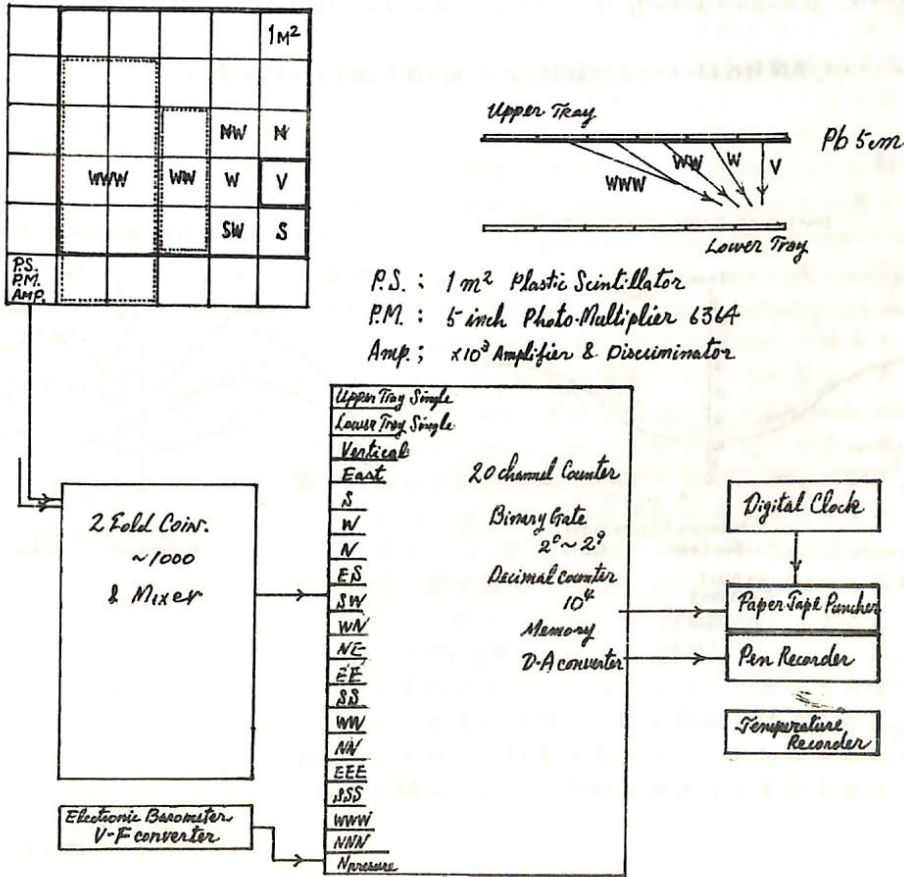 1M²
NW N
WWW WW W V
SW S
P.S.
P.M.
AMP.
Upper Tray
Pb 5cm
WWW WW W V
Lower Tray
P.S. ; 1 m² Plastic Scintillator
P.M. : 5 inch Photo-Multiplier 6364
Amp. ; ×10³ Amplifier & Discriminator
2 Fold Coin.
~1000
& Mixer
Electronic Barometer
V-F converter
Upper Tray Single
Lower Tray Single
Vertical
East
S
W
N
ES
SW
WN
NE
EE
SS
WW
NN
EEE
SSS
WWW
NNN
Npressure
20 channel Counter
Binary Gate
2⁰ ~ 2⁹
Decimal Counter
10⁴
Memory
D-A converter
Digital Clock
Paper Tape Puncher
Pen Recorder
Temperature
Recorder